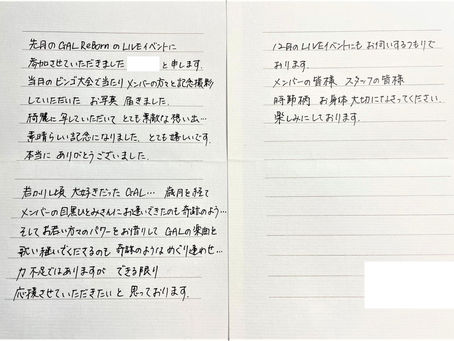 先月の GAL ReBorn の LIVEイベントに
参加させていただきました と申します。
当日のビンゴ大会で当たり メンバーの方々と記念撮影
していただいた お写真 届きました。
綺麗に写していただいて とても素敵な想い出…
素晴らしい記念になりました。とても嬉しいです。
本当に ありがとうございました。
若かりし頃 大好きだった GAL… 歳月を経て
メンバーの目黒ひとみさんにお逢いできたのも奇跡のよう…
そしてお若い方々のパワーをお借りして GALの楽曲を
歌い継いでくださるのも 奇跡のようなめぐり逢わせ…
力不足ではありますが できる限り
応援させていただきたいと 思っております。
12月のLIVEイベントにもお伺いするつもりで
おります。
メンバーの皆様 スタッフの皆様
時節柄 お身体大切になさってください。
楽しみにしております。